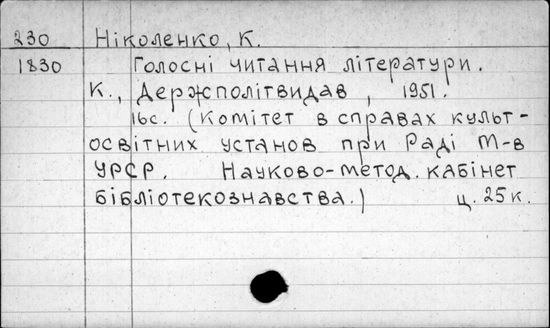 230 Ніколенко, К.
1830 Голосні читання літератури.
К., Держполітвидав, 1951.
16с. (Комітет в справах культ-
освітних установ при Раді М-в
УРСР. Науково-метод. кабінет
бібліотекознавства.) ц. 25к.